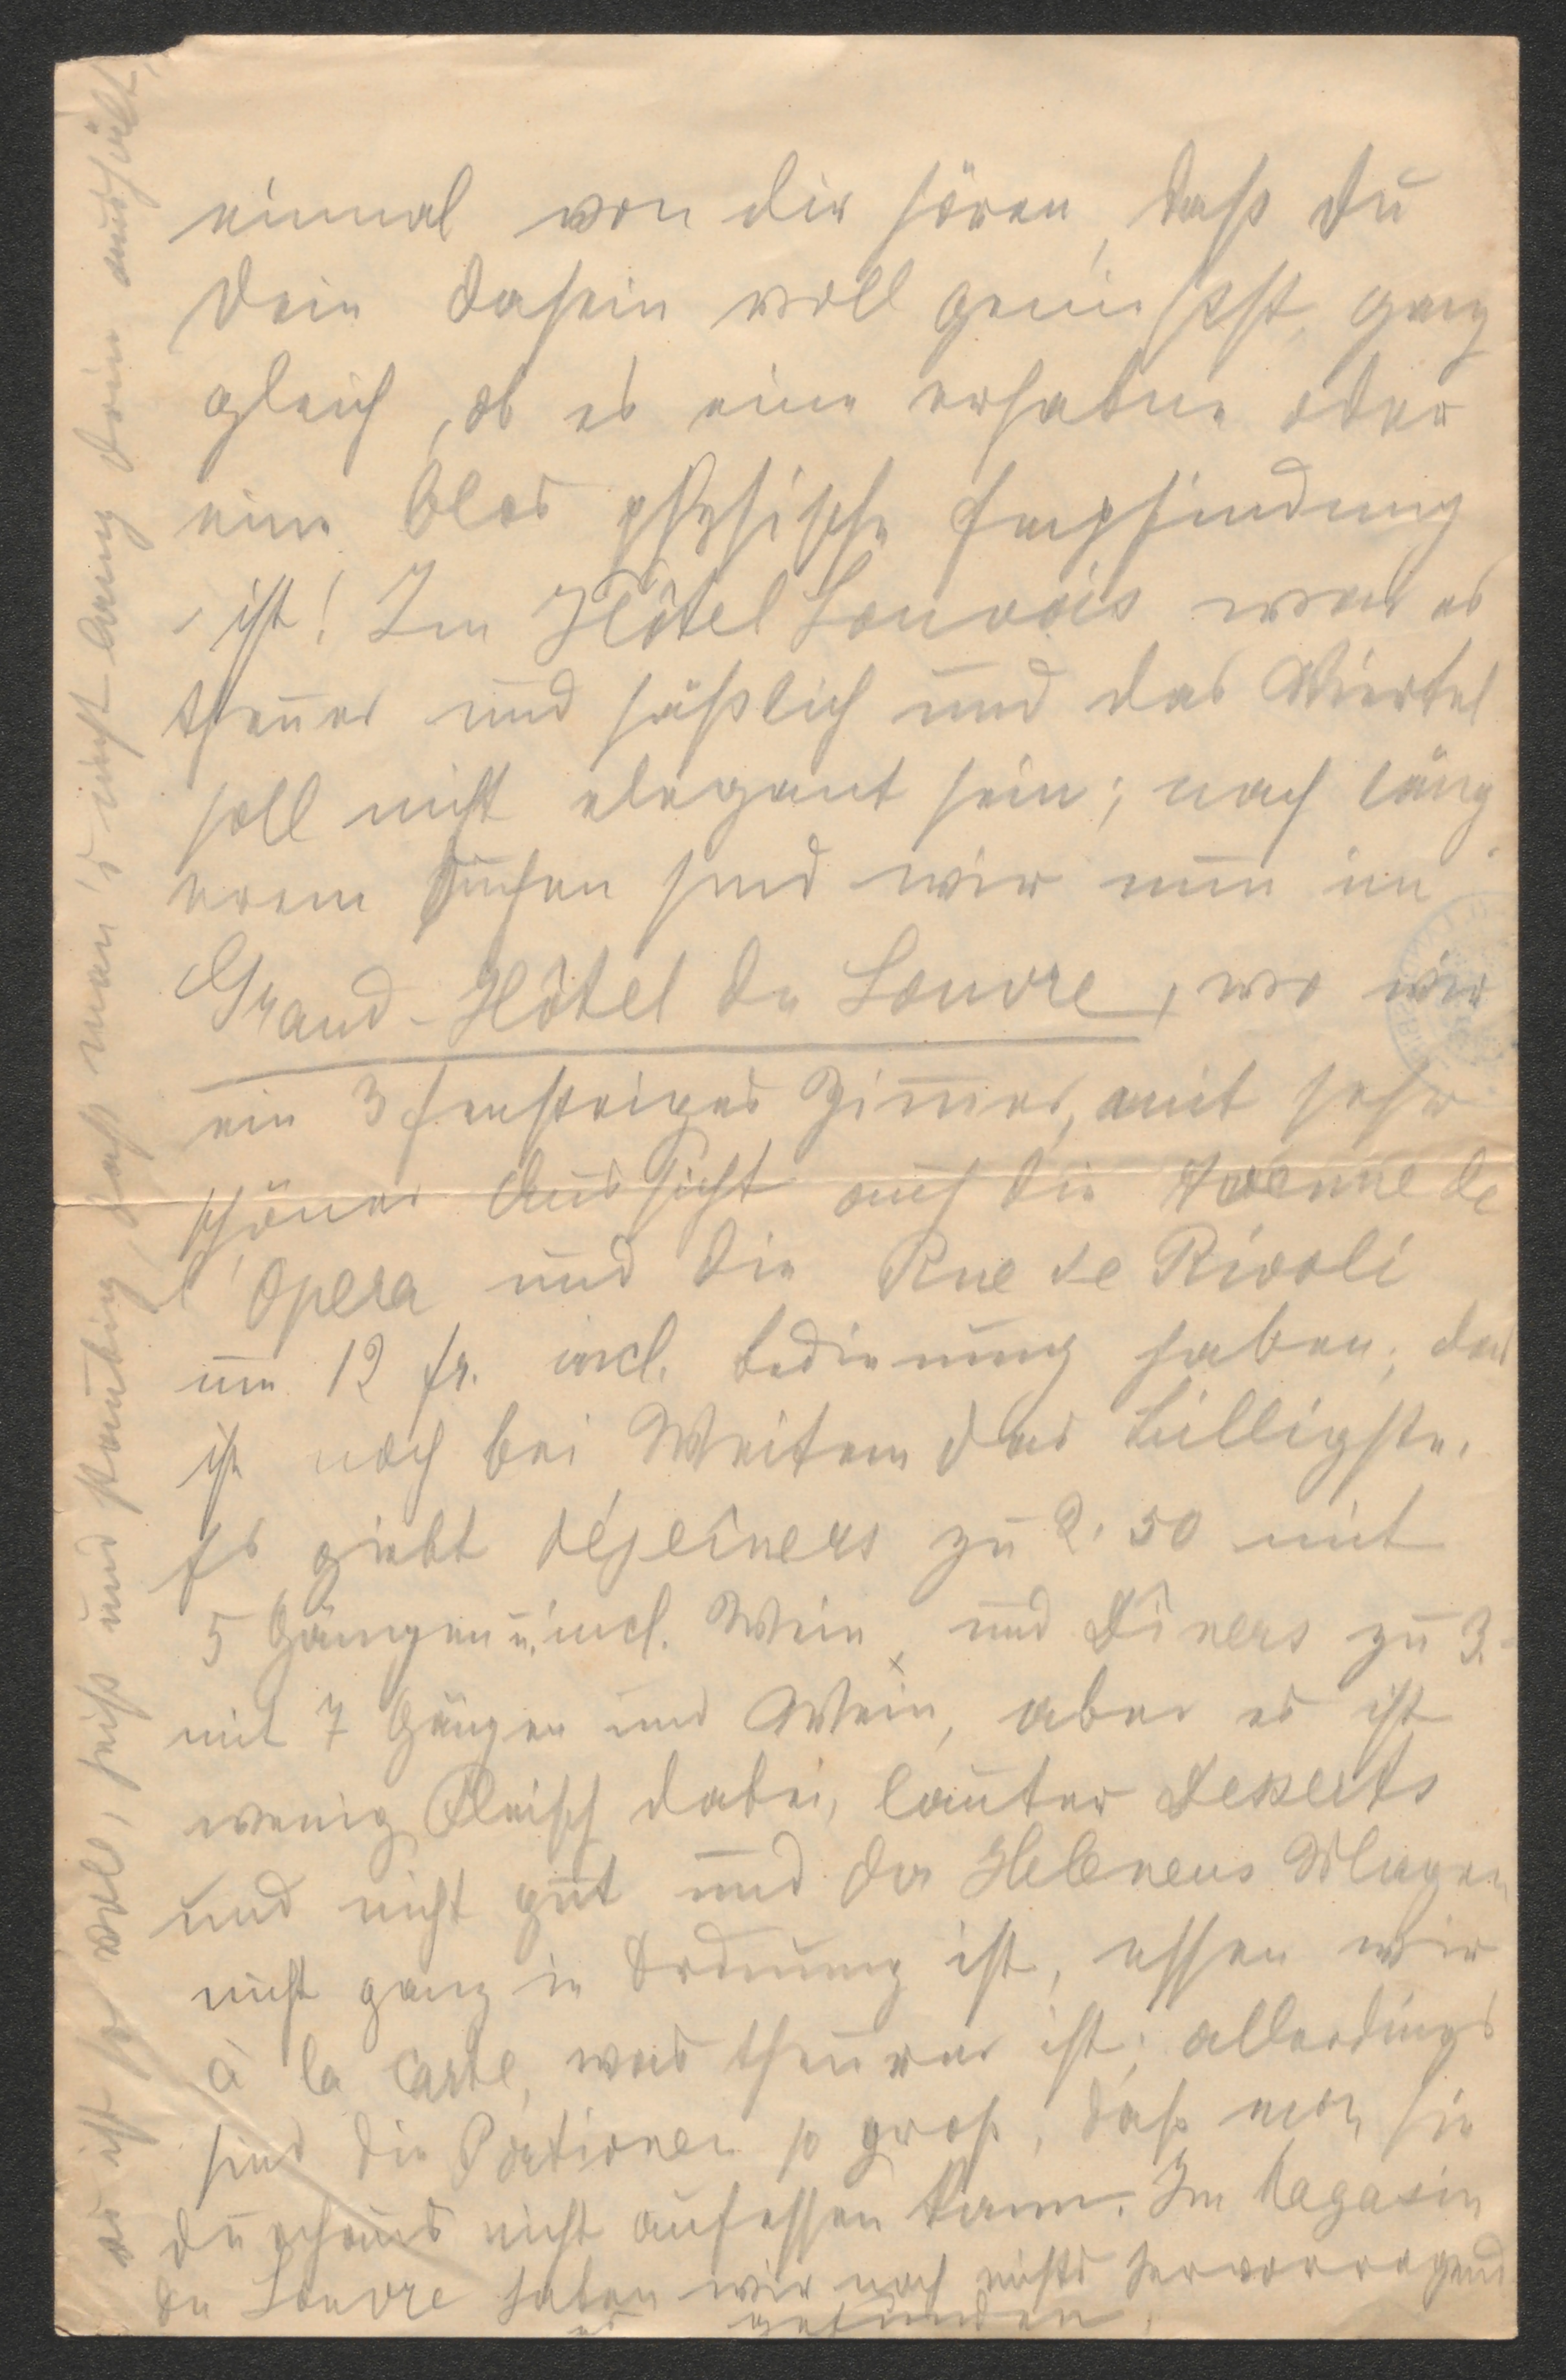 einmal von dir hören, daß du
dein Dasein voll genießst, ganz
gleich, ob es eine erhabne oder
eine blos physische Empfindung
ist! Im Hôtel Louvois war es
theuer und häßlich und das Viertel
soll nicht elegant sein; nach läng
erem Suchen sind wir nun im
Grand-Hôtel du Louvre, wo wir
ein 3 fenstriges Zimmer, mit sehr
schöner Aussicht auf die Avenue de
l'Opera und die Rue de Rivoli
um 12 fr. incl. Bedienung haben; das
ist noch bei Weitem das Billigste.
Es giebt déjeûners zu 2.50 mit
5 Gängen u. incl. Wein, und Dîners zu 3.
mit 7 Gängen und Wein, aber es ist
wenig Fleisch dabei, lauter Desserts
und nicht gut und da Helenens Magen
nicht ganz in Ordnung ist, essen wir
à la carte, was theurer ist; allerdings
sind die Portionen so groß, daß man sie
durchaus nicht aufessen kann. Im Magasin
du Louvre haben wir noch nichts hervorragend
es gefunden.
es ist so voll, heiß und staubig, daß man's nicht lang drin aushält,